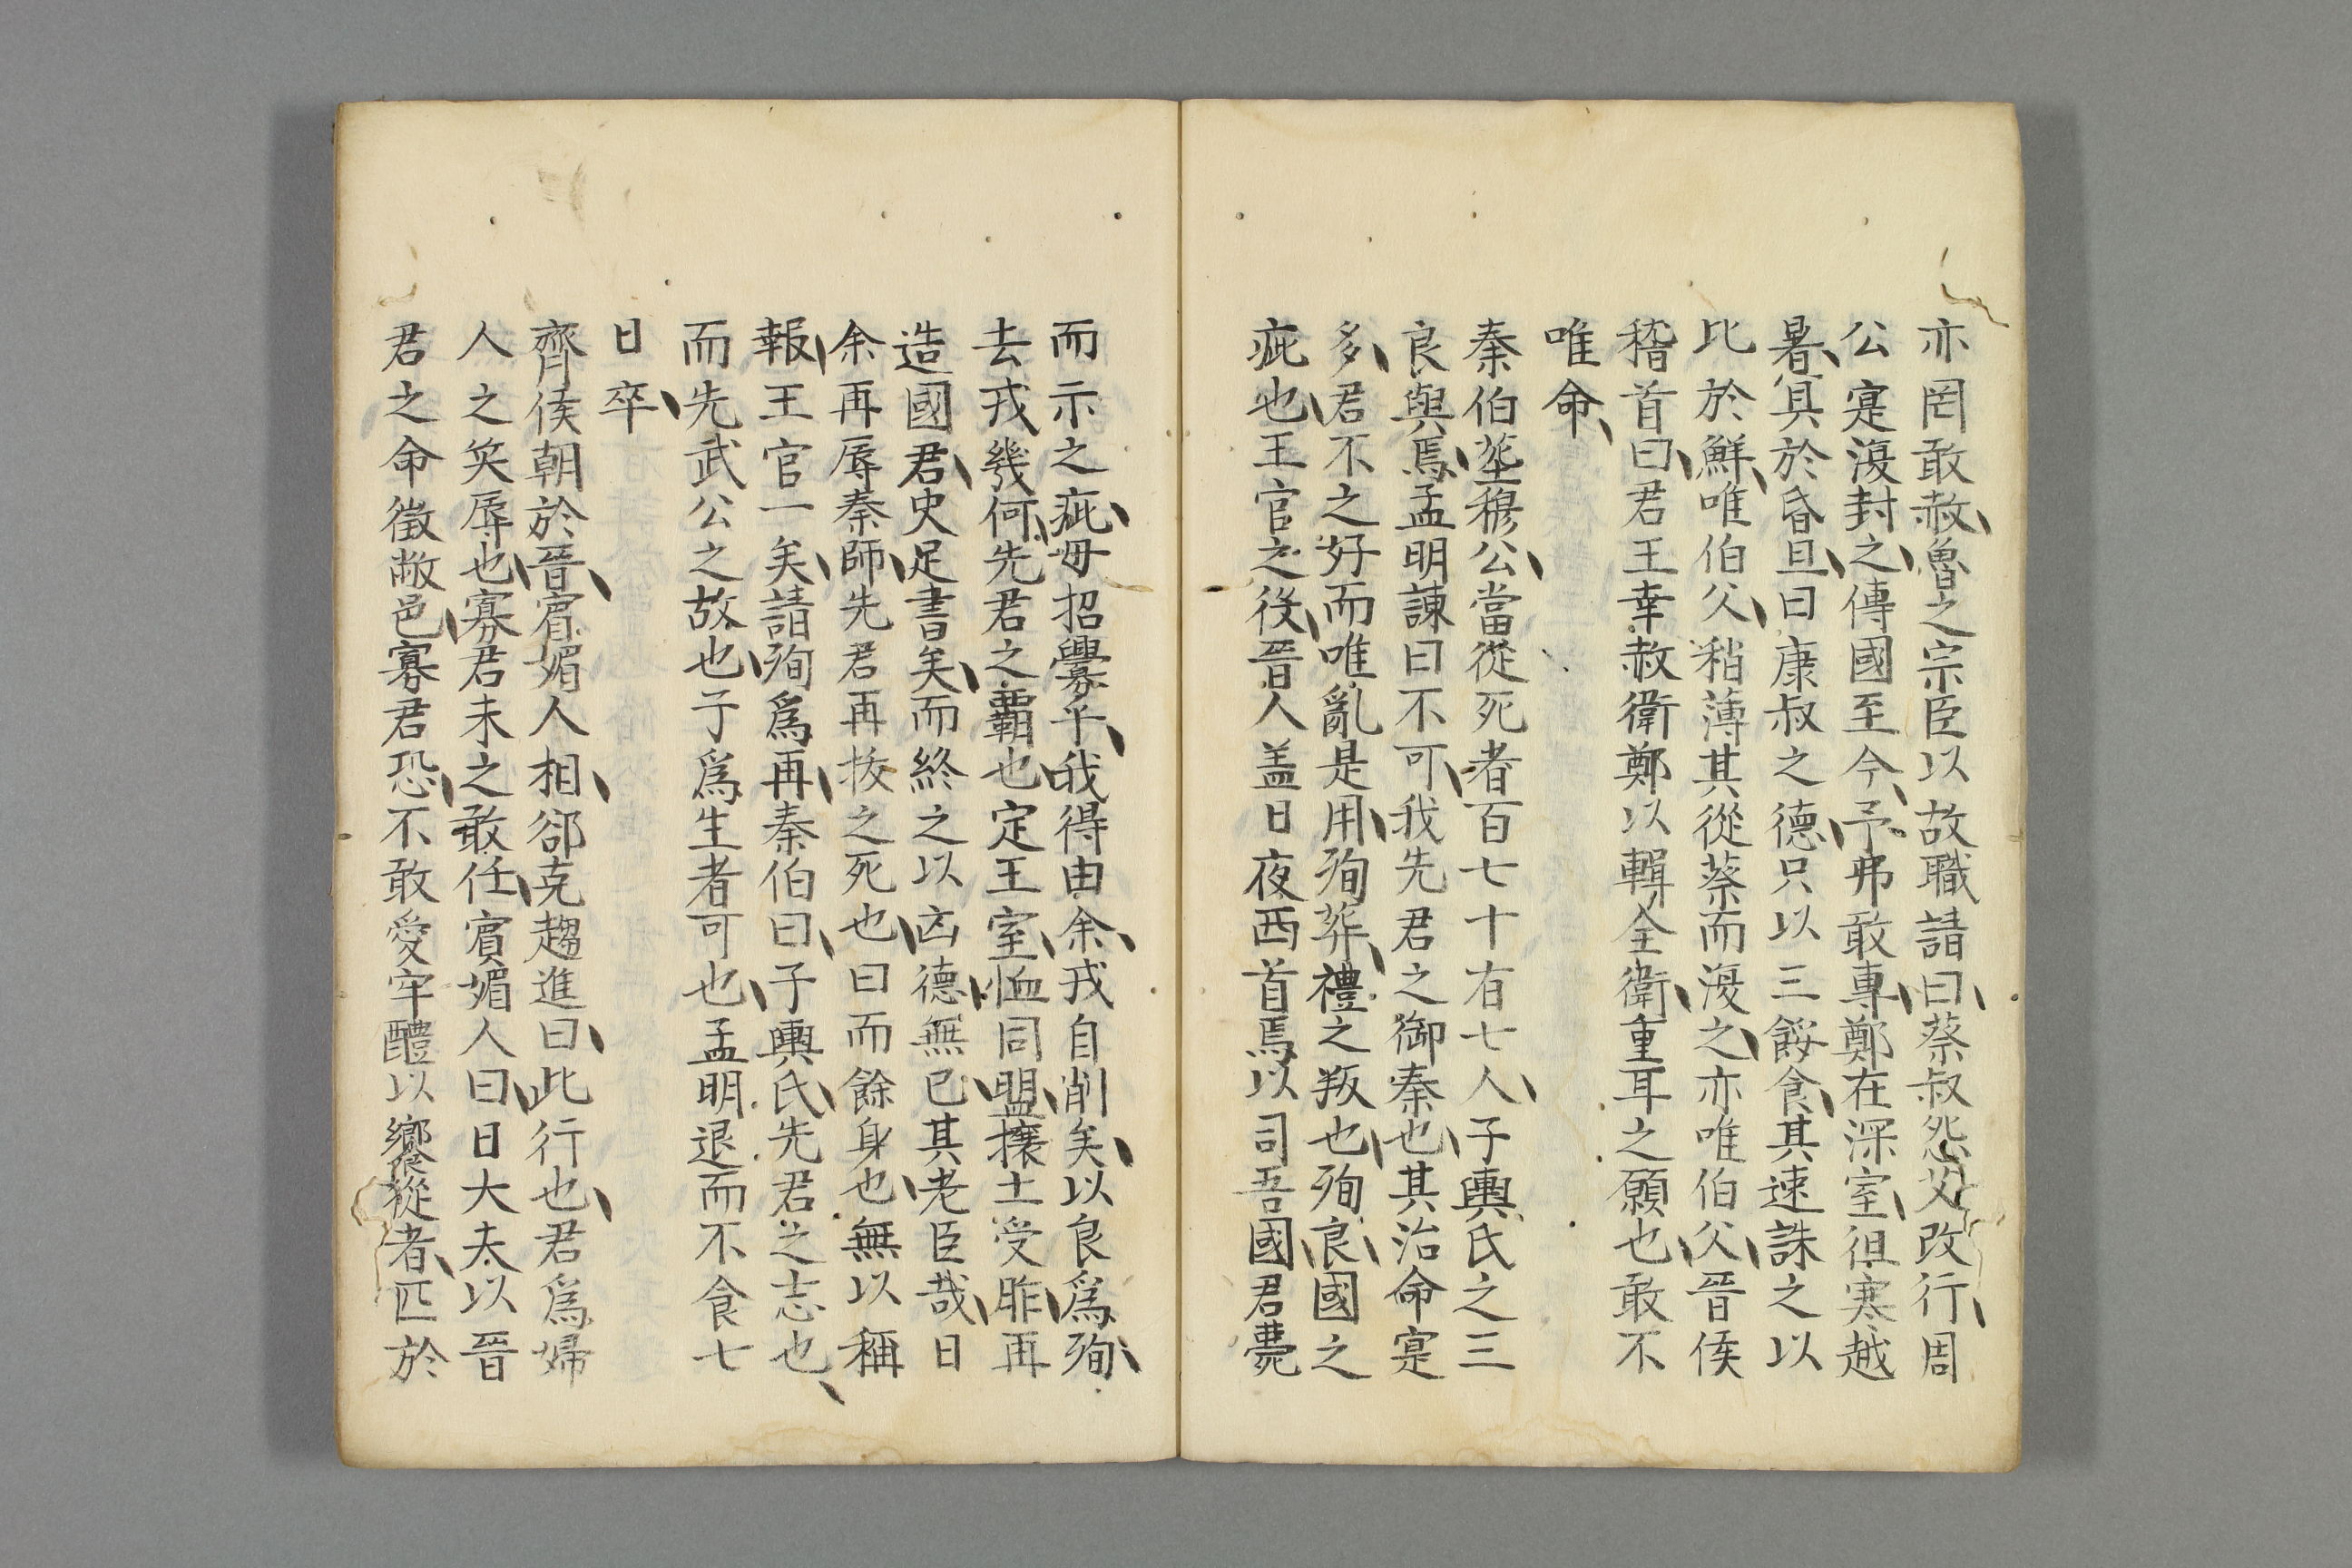 亦罔敢赦魯之宗臣以故職請曰蔡叔怨艾改行周
公寔復封之傳國至今予弗敢專鄭在深室徂寒越
暑寘於昏旦曰康叔之德只以三餒食其速誅之以
比於鮮唯伯父稍薄其從蔡而復之亦唯伯父晉侯
稽首曰君王幸赦衛鄭以輯全衛重耳之願也敢不
唯命
秦伯塟穆公當從死者百七十有七人子輿氏之三
良與焉孟明諫曰不可我先君之御秦也其治命寔
多君不之好而唯亂是用殉葬禮之叛也殉良國之
疵也王官之役晉人盖日夜西首焉以司吾國君薨
而示之疵毋招釁乎我得由余戎自削矣以良爲殉
去戎幾何先君之覇也定王室恤同盟攘土受胙再
造國君史足書矣而終之以凶德無已其老臣哉日
余再辱秦師先君再拔之死也曰而餘身也無以稱
報王官一矣請殉爲再秦伯曰子輿氏先君之志也
而先武公之故也子爲生者可也孟明退而不食七
日卒
齊侯朝於晉賓媚人相郤克趨進曰此行也君爲婦
人之笑辱也寡君未之敢任賓媚人曰日大夫以晉
君之命徵敝邑寡君恐不敢愛牢醴以饗從者匹於